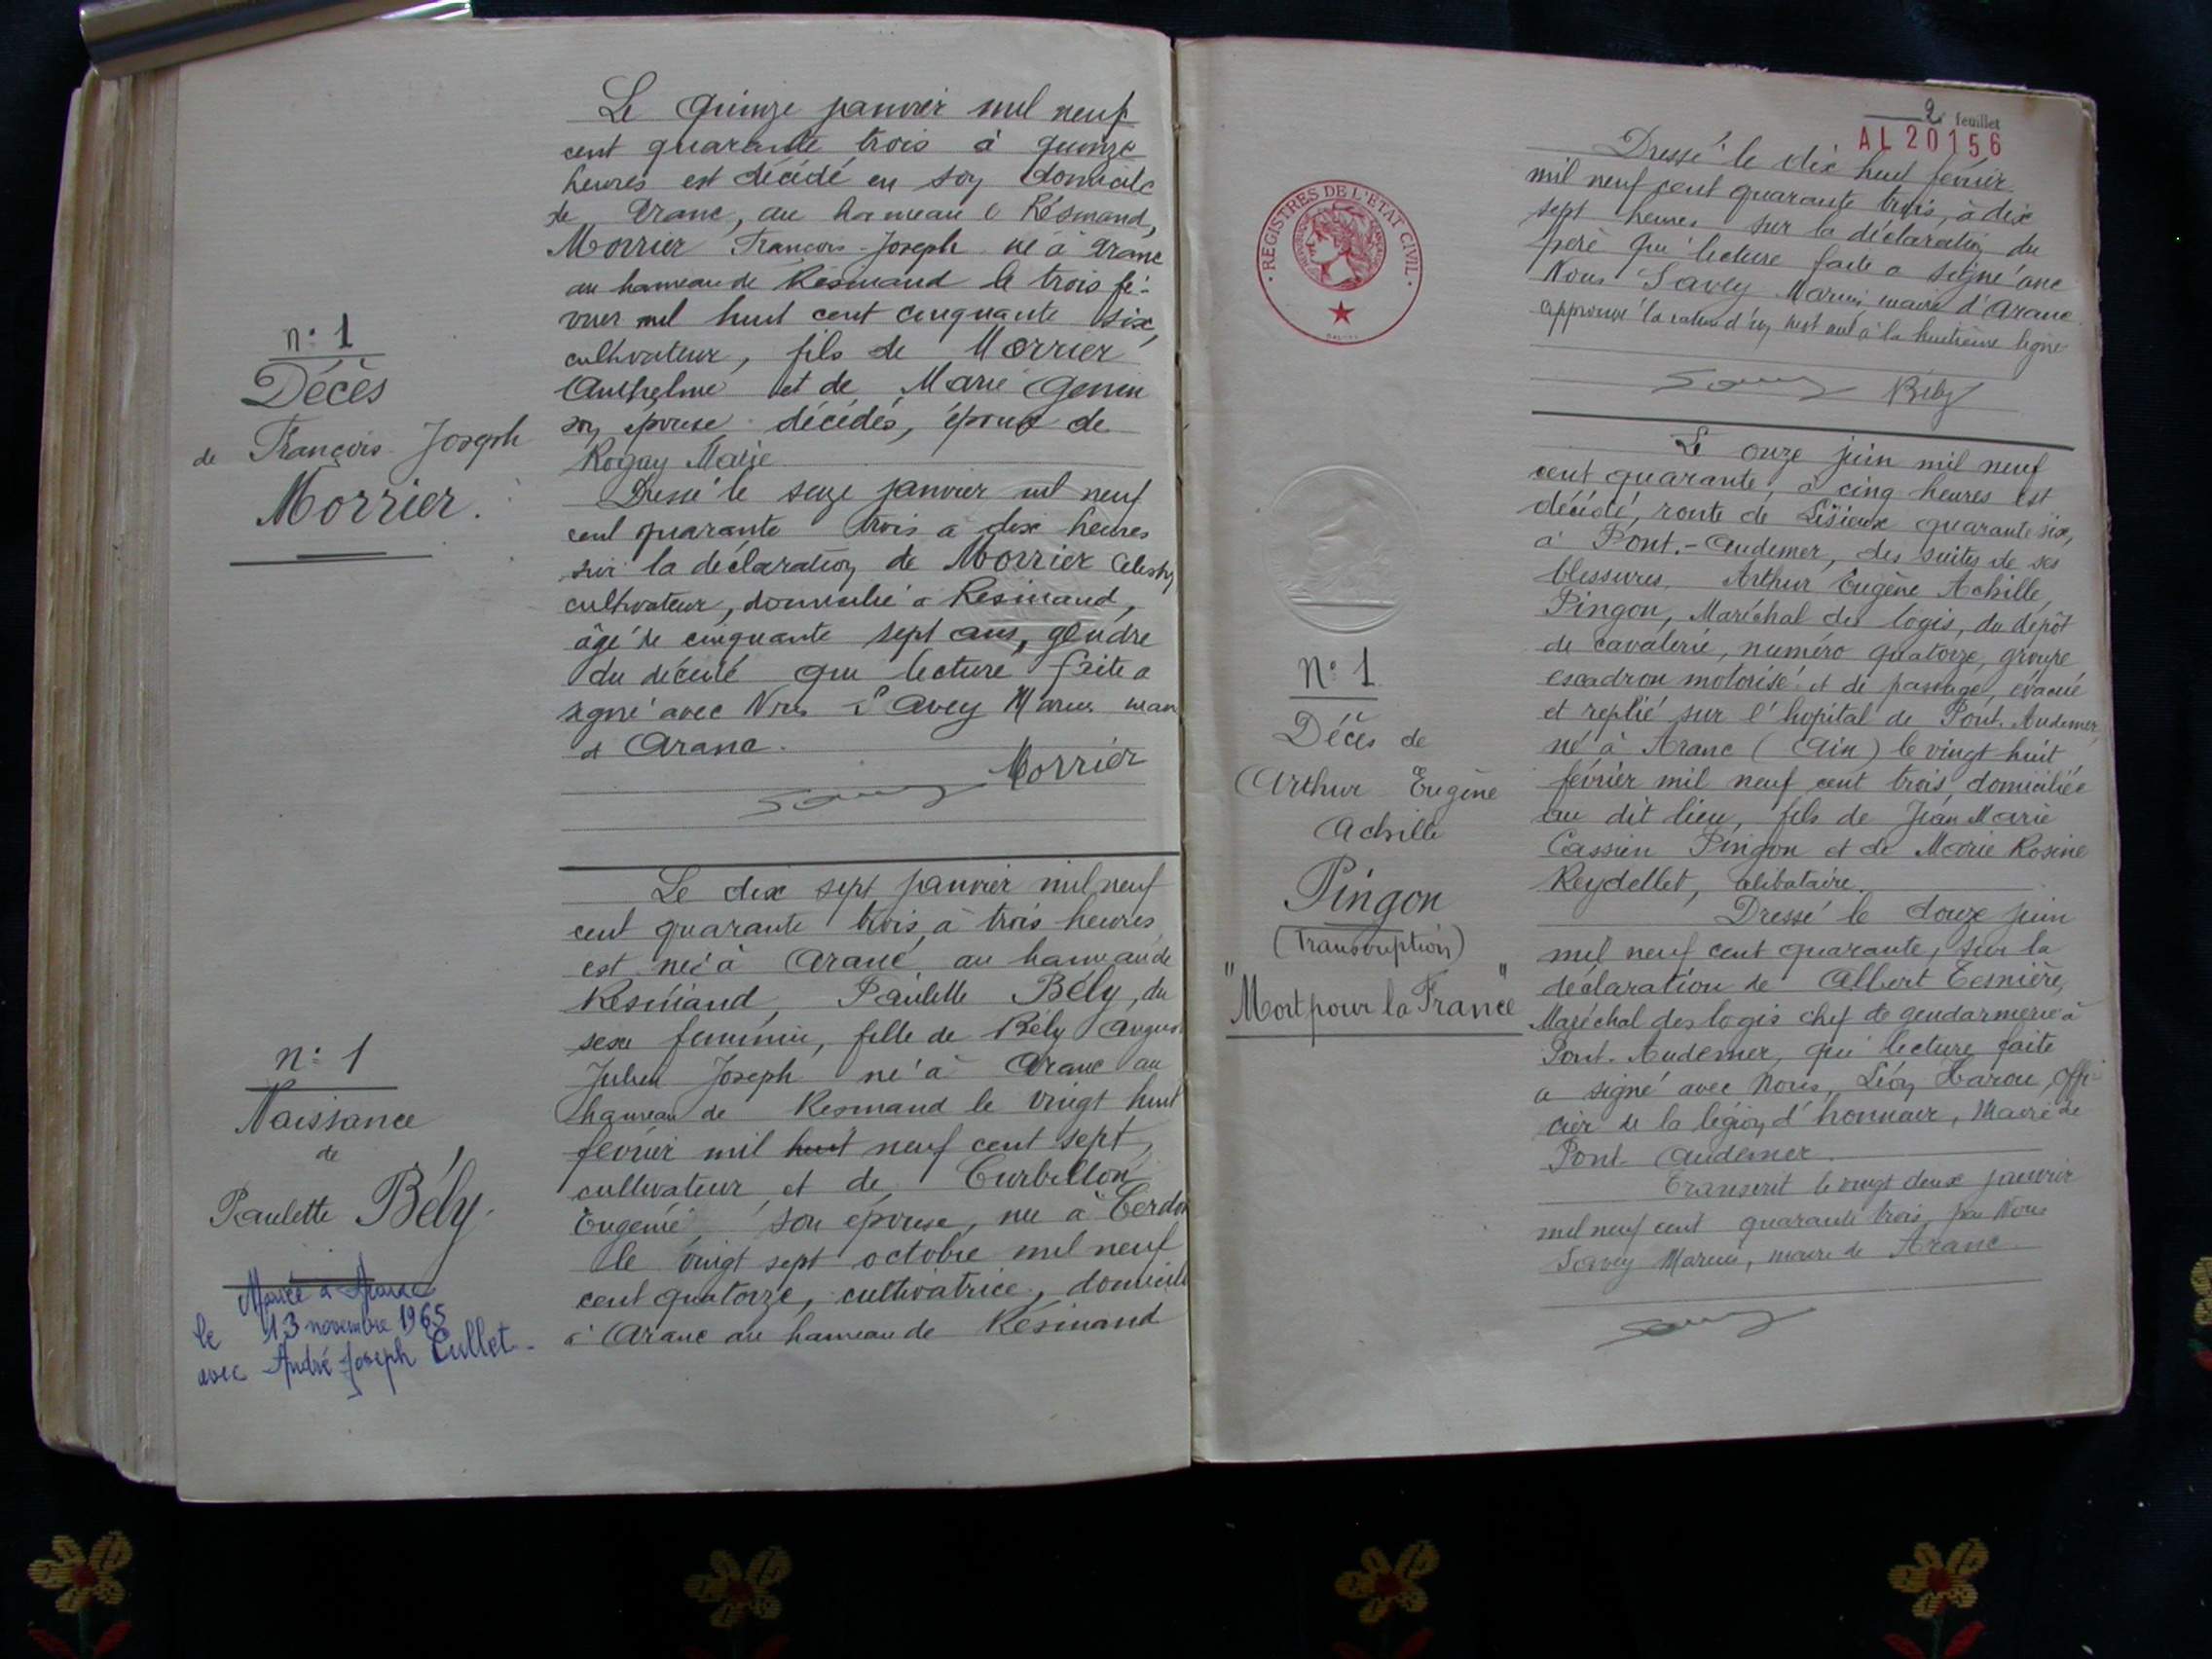 n: 1
Décès
de François Joseph
Morrier.
Le quinze janvier mil neuf
cent quarante trois à quinze
heures est décédé en son domicile
de Aranc, au hameau Résinand,
Morrier François-Joseph né à Aranc
au hameau de Résinand le trois fé-
vrier mil huit cent cinquante six,
cultivateur, fils de Morrier
Anthelme et de Marie Genin
son épouse décédés, époux de
Rogay Marie
Dressé le seize janvier mil neuf
cent quarante trois à dix heures
sur la déclaration de Morrier
cultivateur, domicilié à Résinand,
âgé de cinquante sept ans, gendre
du décédé qui lecture faite a
signé avec Nous Savey Marius maire
d'Aranc.
Morrier
n: 1
Naissance
de
Paulette Bély.
Mariée à Aranc
le 13 novembre 1965
avec André Joseph Cullet.
Le dix sept janvier mil neuf
cent quarante trois, à trois heures
est née à Aranc, au hameau de
Résinand, Paulette Bély, du
sexe féminin, fille de Bély August
Julien Joseph né à Aranc au
hameau de Résinand le vingt huit
février mil huit neuf cent sept,
cultivateur et de Curbillon
Eugénie, son épouse, née à Cerdon
le vingt sept octobre mil neuf
cent quatorze, cultivatrice, domicilié
à Aranc au hameau de Résinand
2e feuillet
AL 20156
REGISTRES DE L'ETAT CIVIL
Dressé le dix huit février
mil neuf cent quarante trois, à dix
sept heures sur la déclaration du
père qui lecture faite a signé avec
Nous Savey Marius maire d'Aranc
approuvé la rature d'un mot nul à la huitième ligne
Bély
N: 1
Décès de
Arthur Eugène
Achille
Pingon
(Transcription)
"Mort pour la France"
Le onze juin mil neuf
cent quarante, à cinq heures est
décédé, route de Lisieux quarante six,
à Pont.-Audemer, des suites de ses
blessures, Arthur Eugène Achille,
Pingon, Maréchal des logis, du dépôt
de cavalerie, numéro quatorze, groupe
escadron motorisé et de passage, évacué
et replié sur l'hopital de Pont. Audemer,
né à Aranc (Ain) le vingt huit
février mil neuf cent trois, domiciliée
au dit lieu, fils de Jean Marie
Cassien Pingon et de Marie Rosine
Reydellet, célibataire.
Dressé le douze juin
mil neuf cent quarante, sur la
déclaration de Albert Tesnière,
Maréchal des logis chef de gendarmerie à
Pont. Audemer, qui lecture faite
a signé avec Nous, Léon Harou, Offi-
cier de la légion d'honneur, Maire de
Pont. Audemer.
Transcrit le vingt deux janvier
mil neuf cent quarante trois, par Nous
Savey Marius, maire de Aranc